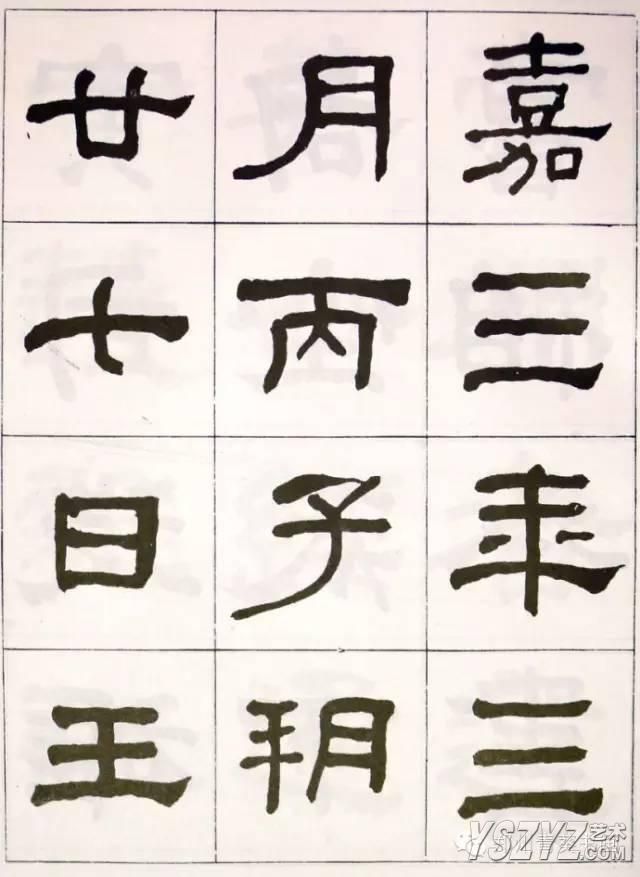 嘉三年三
月丙子朔
廿七日壬
YSZYZ艺术.COM